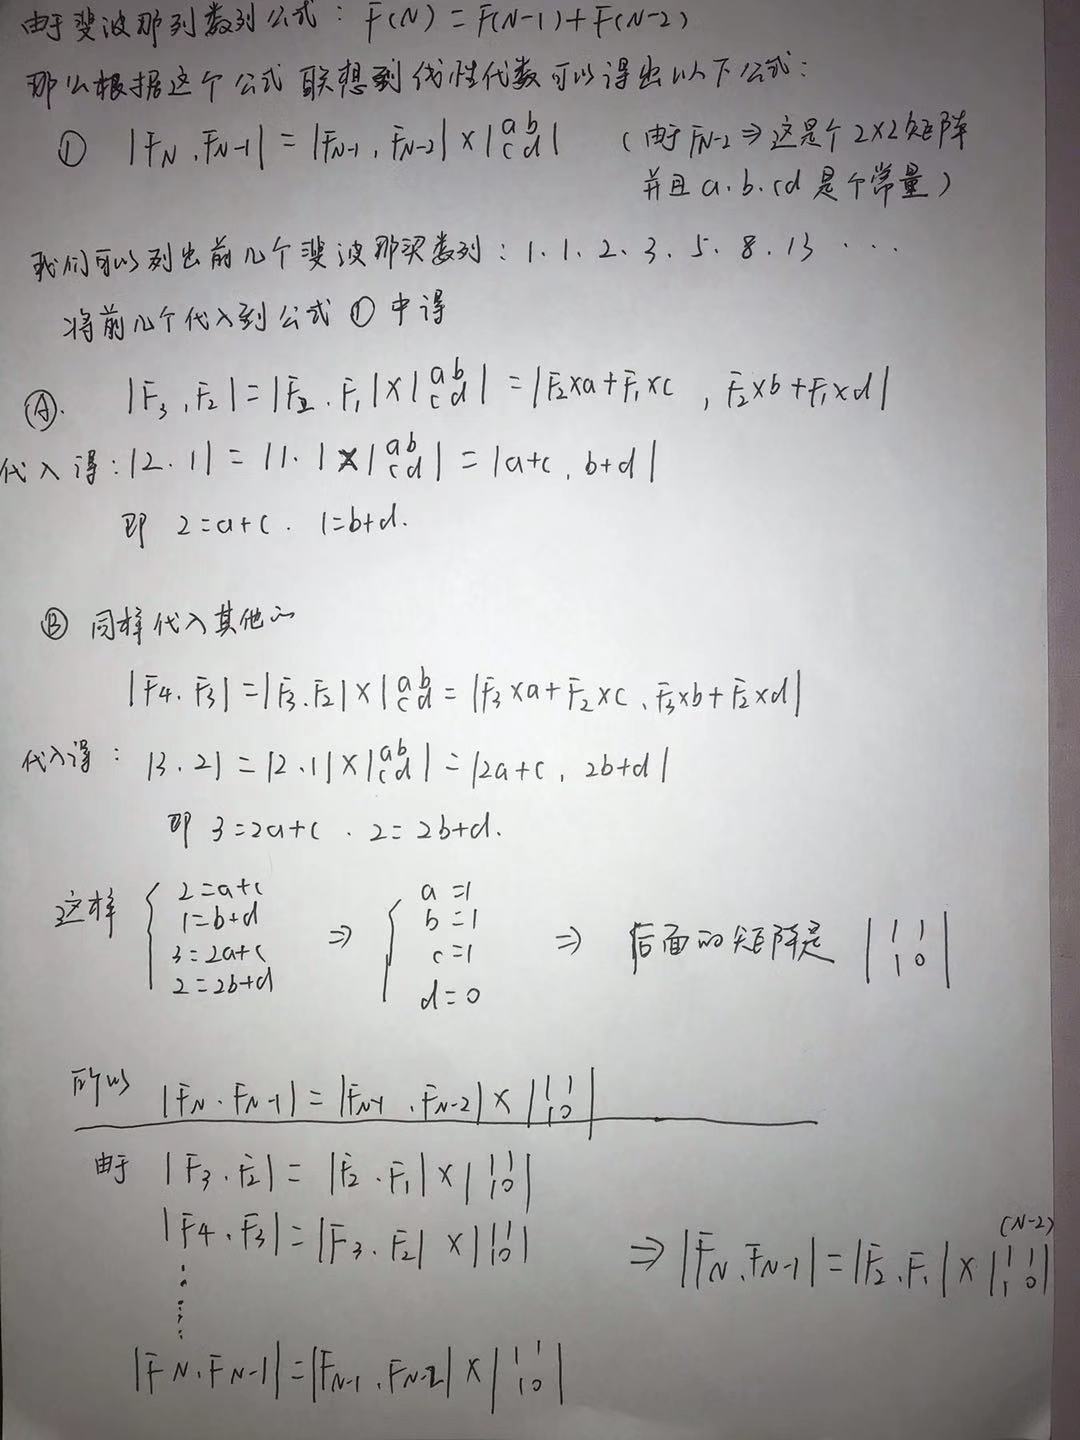 由于斐波那列数列公式：F(N)=F(N-1)+F(N-2)
那么根据这个公式联想到线性代数可以得出以下公式：
① |FN,FN-1|=|FN-1,FN-2|×|a b c d| (由于FN-2⇒这是个2×2矩阵
并且a.b.cd是个常量)
我们可以列出前几个斐波那契数列：1.1.2、3、5、8.13 ...
将前几个代入到公式①中得
Ⓐ. |F3,F2|=|F2.F1|×|a b c d|=|F2×a+F1×c,F2×b+F1×d|
代入得：|2.1|=|1.1×|a b c d|=|a+c,b+d|
即 2=a+c. 1=b+d.
Ⓑ 同样代入其他
|F4.F3|=|F3.F2|×|a b c d=|F3×a+F2×c、F3×b+F2×d|
代入得：|3.2|=|2.1|×|a b c d|=|2a+c,2b+d|
即 3=2a+c . 2=2b+d.
这样 { 2=a+c ⇒ { a=1 ⇒ 后面的矩阵是 |1 1
1=b+d b=1 1 0|
3=2a+c c=1
2=2b+d d=0
所以 |FN.FN-1|=|FN-1,FN-2|×|1 1 1 0|
由于 |F3.F2|=|F2.F1|×|1 1 1 0|
|F4,F3|=|F3.F2|×|1 1 1 0| ⇒|FN,FN-1|=|F2,F1|×|1 1 1 0|(N-2)
⋮
|FN,FN-1|=|FN-1,FN-2|×|1 1 1 0|